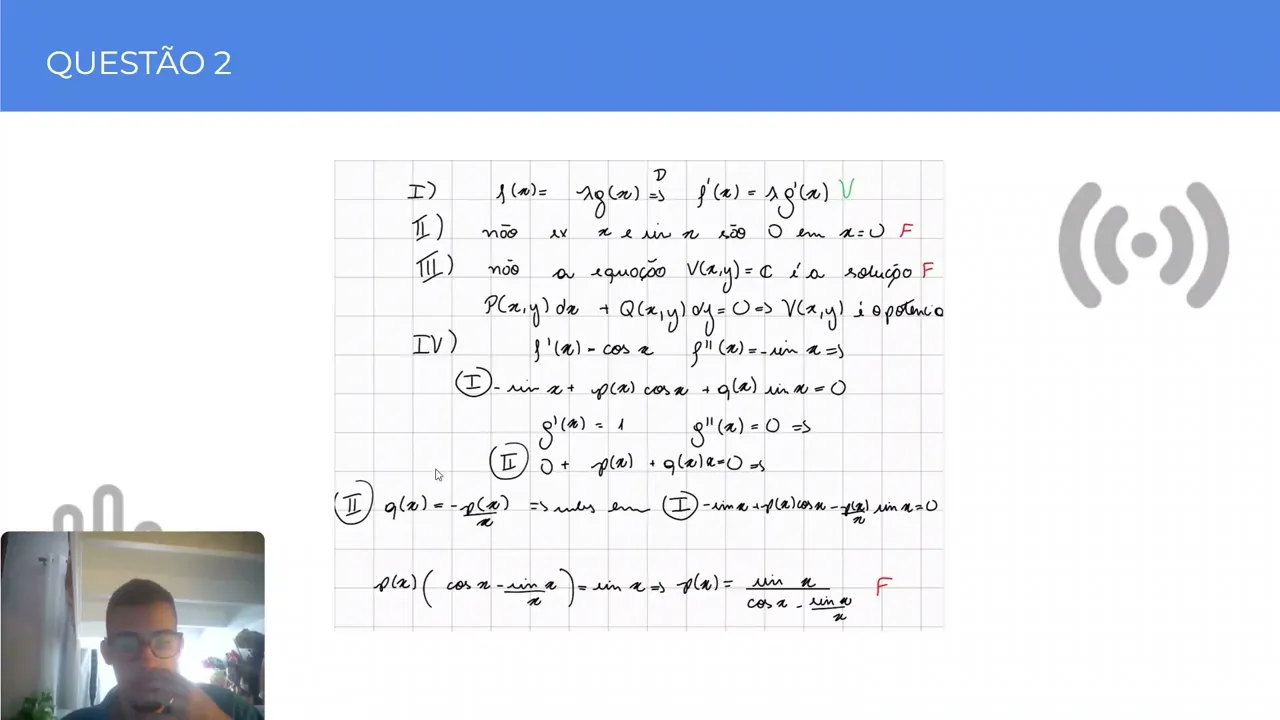 QUESTÃO 2
I) f(x) = λg(x) ⇒ᴰ f'(x) = λg'(x) V
II) não ex x e sin x são 0 em x=0 F
III) não a equação V(x,y) = C é a solução F
P(x,y)dx + Q(x,y)dy=0 ⇒ V(x,y) é o potencia
IV) f'(x) = cos x f''(x) = -sin x ⇒
(I) -sin x + p(x) cos x + q(x) sin x = 0
g'(x) = 1 g''(x) = 0 ⇒
(II) 0 + p(x) + q(x)x=0 ⇒
(II) q(x) = -p(x)/x ⇒ subs em (I) -sin x + p(x)cos x - p(x)/x sin x = 0
p(x)(cos x - sin x/x) = sin x ⇒ p(x) = sin x/(cos x - sin x/x) F